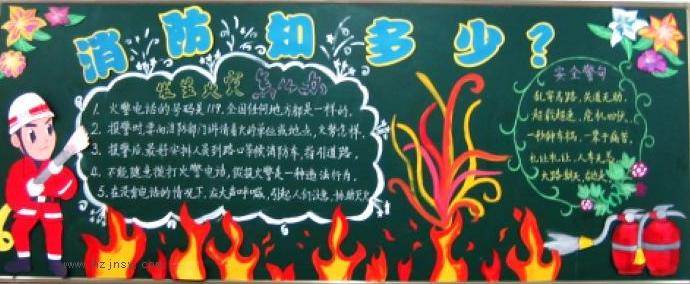 消防知多少?
发生火灾怎么办
1. 火警电话的号码是119,全国任何地方都是一样的.
2. 报警时要向消防部门讲清着火的单位或地点,火势怎样.
3. 报警后,最好安排人员到路口等候消防车,指引道路.
4. 不能随意拨打火警电话,假报火警是一种违法行为.
5. 在没有电话的情况下,应大声呼喊,引起人们注意,协助灭火
安全警句
乱穿马路,失道无助.
超载超速,危机四伏.
一秒钟车祸,一辈子痛苦.
礼让礼让,人车无恙.
大路朝天